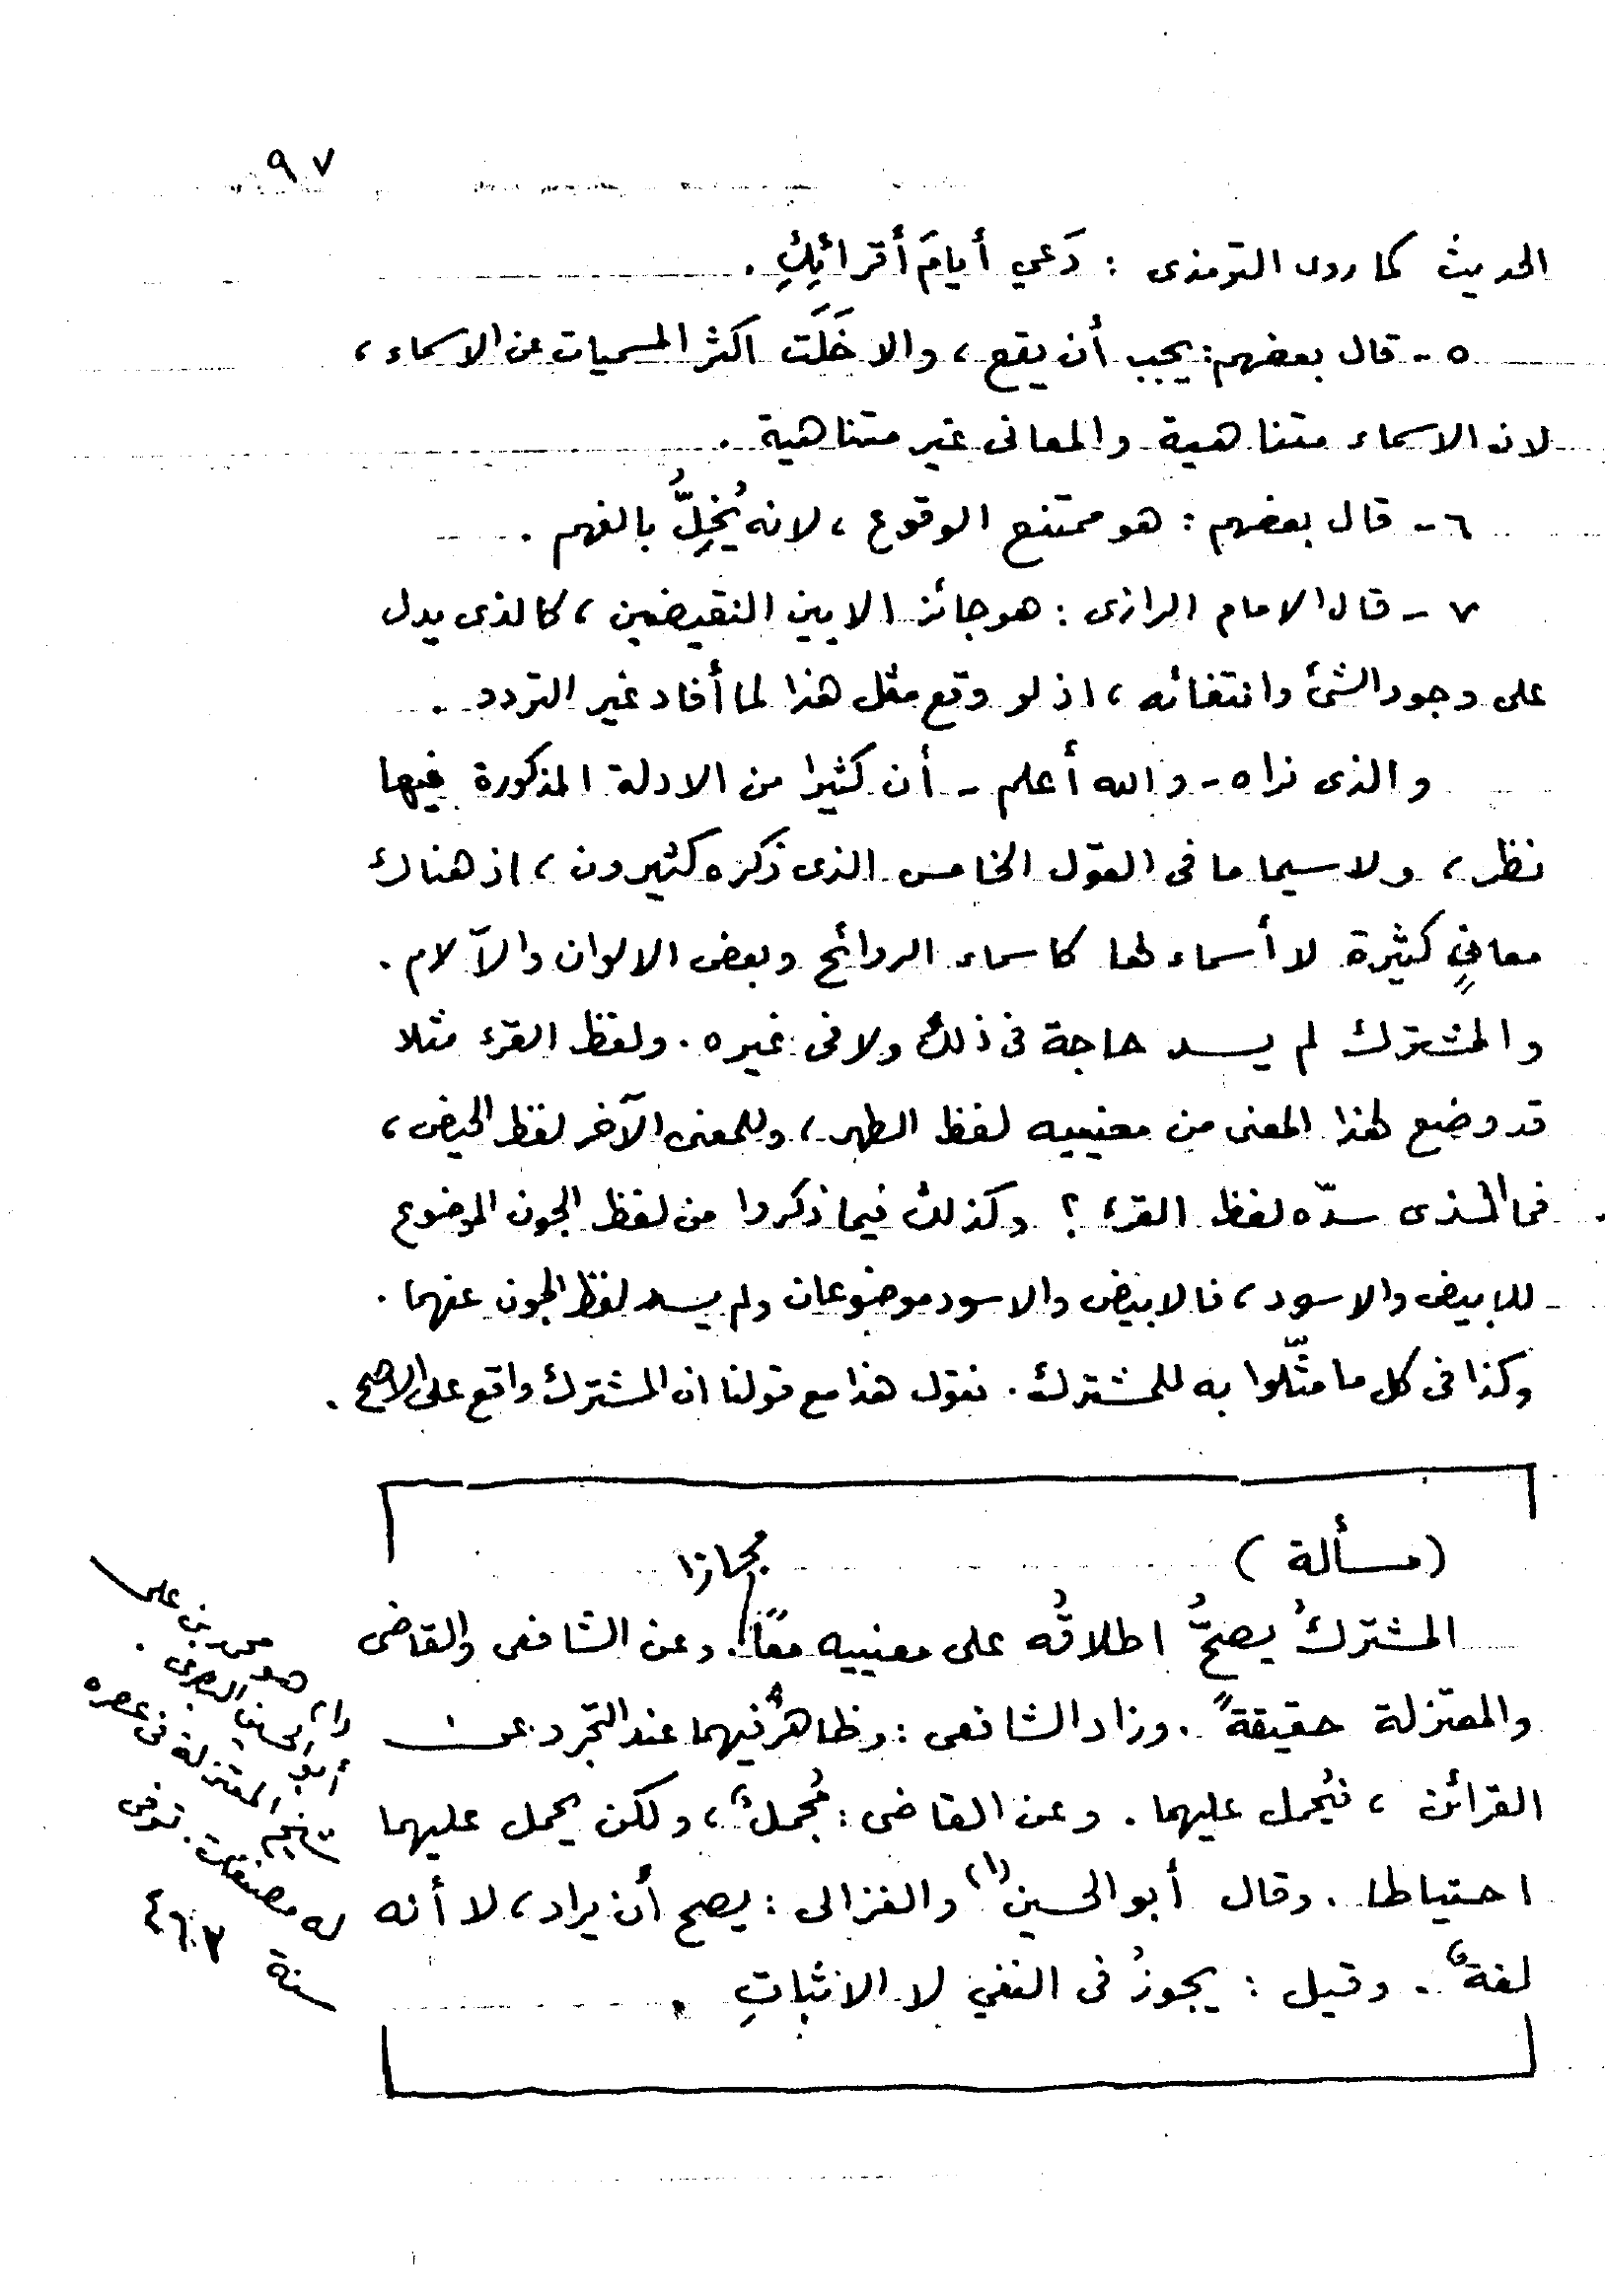 ٩٧
الحديث كما روى الترمذى : دَعي أيامَ أقرائِكِ .
٥ - قال بعضهم : يجب أن يقع ، والا خَلَت اكثر المسميات عن الاسماء ،
لان الاسماء متناهية والمعانى غير متناهية .
٦ - قال بعضهم : هو ممتنع الوقوع ، لانه يُخِلُّ بالفهم .
٧ - قال الامام الرازى : هو جائز الا بين النقيضين ، كالذى يدل
على وجود الشئ وانتفائه ، اذ لو وقع مثل هذا لما أفاد غير التردد .
والذى نراه - والله أعلم - أن كثيرا من الادلة المذكورة فيها
نظر ، ولا سيما ما فى القول الخامس الذى ذكره كثيرون ، اذ هناك
معانٍ كثيرة لا أسماء لها كاسماء الروائح وبعض الالوان والآلام .
والمشترك لم يسد حاجة فى ذلك ولا فى غيره . ولفظ القرء مثلا
قد وضع لهذا المعنى من معنييه لفظ الطهر ، وللمعنى الآخر لفظ الحيض ،
فما الذى سدّه لفظ القرء ؟ وكذلك فيما ذكروا من لفظ الجون الموضوع
للابيض والاسود ، فالابيض والاسود موضوعان ولم يسد لفظ الجون عنهما .
وكذا فى كل ما مثّلوا به للمشترك . نقول هذا مع قولنا ان المشترك واقع على الاصح .
( مسألة )
المشتركُ يصحُّ اطلاقُه على معنييه معًا مجازا . وعن الشافعى والقاضى
والمعتزلة حقيقةً . وزاد الشافعى : وظاهرٌ فيهما عند التجرد عن
القرائن ، فيُحمل عليهما . وعن القاضى : مُجملٌ ، ولكن يحمل عليهما
احتياطا . وقال أبو الحسين (١) والغزالى : يصح أن يراد ، لا أنه
لغةً . وقيل : يجوزُ فى النفي لا الاثباتِ .
(١) هو محمد بن على
أبو الحسين البصرى .
شيخ المعتزلة فى عصره
له مصنفات . توفى
سنة